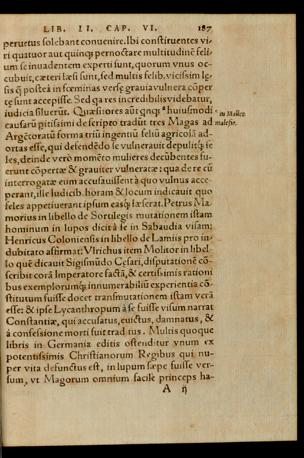 LIB. II. CAP. VI. 187
peruetus solebant conuenire. Ibi constituentes vi-
ri quatuor aut quinque pernoctare multitudinẽ feli-
um se inuadentem experti sunt, quorum vnus oc-
cubuit, cæteri læsi sunt, sed multis felib. vicissim lę-
sis q̃ posteà in fœminas versę grauia vulnera cõper
tę sunt accepisse. Sed qa res incredibilis videbatur,
iudicia siluerũt. Quæsitores aũt qnqꝫ * huiusmodi
causarũ pitissimi de scripto tradũt tres Magas ad
Argẽtoratũ forma triũ ingentiũ feliũ agricolã ad-
ortas esse, qui defendẽdo se vulnerauit depulitq́; fe
les, deinde verò momẽto mulieres decũbentes fu-
erunt cõpertæ & grauiter vulneratæ: qua de re cũ
interrogatæ eum accusauissẽt à quo vulnus acce-
perant, ille Iudicib. horam & locum indicauit quo
feles appetiuerant ipsum easq́; læserat. Petrus Ma
morius in libello de Sortilegis mutationem istam
hominum in lupos dicit à se in Sabaudia visam:
Henricus Coloniensis in libello de Lamiis pro in-
dubitato affirmat: Vlrichus item Molitor in libel-
lo quẽ dicauit Sigismũdo Cęsari, disputationẽ cõ-
scribit corã Imperatore factã, & certissimis rationi
bus exemplorumq́; innumerabiliũ experientia cõ-
stitutum fuisse docet transmutationem istam verã
esse: & ipse Lycanthropum à se fuisse visum narrat
Constantiæ, qui accusatus, euictus, damnatus, &
à confessione morti fuit traditus. Multis quoque
libris in Germania editis ostenditur vnum ex
potentissimis Christianorum Regibus qui nu-
per vita defunctus est, in lupum sæpe fuisse ver-
sum, vt Magorum omnium facilè princeps ha-
* In Malleo
malefic.